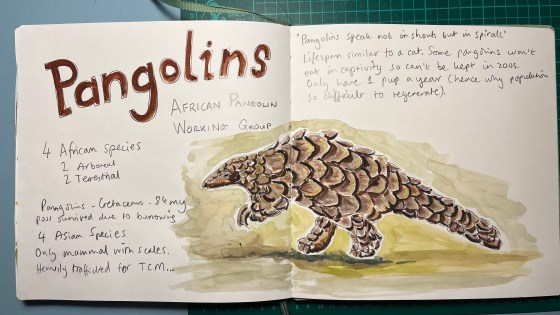 Pangolins
AFRICAN PANGOLIN
WORKING GROUP
4 African species
2 Arboreal
2 Terestrial
Pangolins - Cretaceous - 84 mya
poss survived due to burrowing
4 Asian Species
Only mammal with scales.
Heavily trafficed for TCM...
"Pangolins speak not in shouts but in spirals"
Lifespan similar to a cat. Some pangolins won't
eat in captivity so can't be kept in zoos.
Only have 1 pup a year (hence why population
so difficult to regenerate).